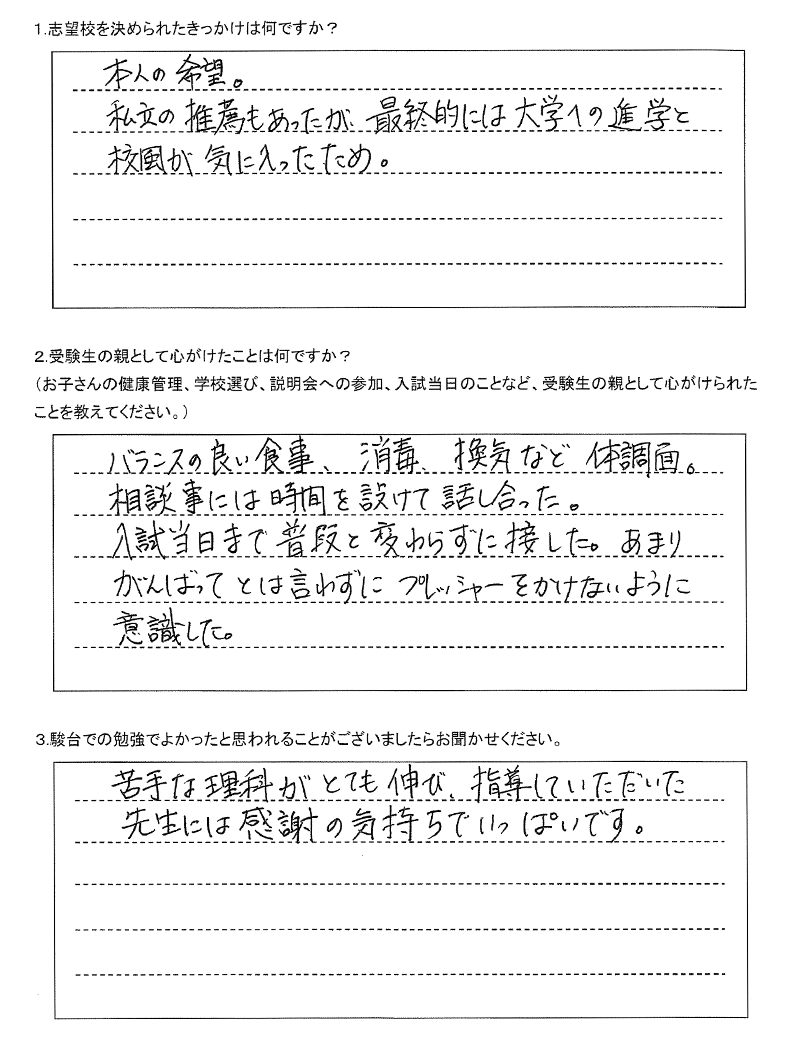 1.志望校を決められたきっかけは何ですか？
本人の希望。
私立の推薦もあったが、最終的には大学への進学と
校風が気に入ったため。
2.受験生の親として心がけたことは何ですか？
（お子さんの健康管理、学校選び、説明会への参加、入試当日のことなど、受験生の親として心がけられた
ことを教えてください。）
バランスの良い食事、消毒、換気など体調面。
相談事には時間を設けて話し合った。
入試当日まで普段と変わらずに接した。あまり
がんばってとは言わずにプレッシャーをかけないように
意識した。
3.駿台での勉強でよかったと思われることがございましたらお聞かせください。
苦手な理科がとても伸び、指導していただいた
先生には感謝の気持ちでいっぱいです。